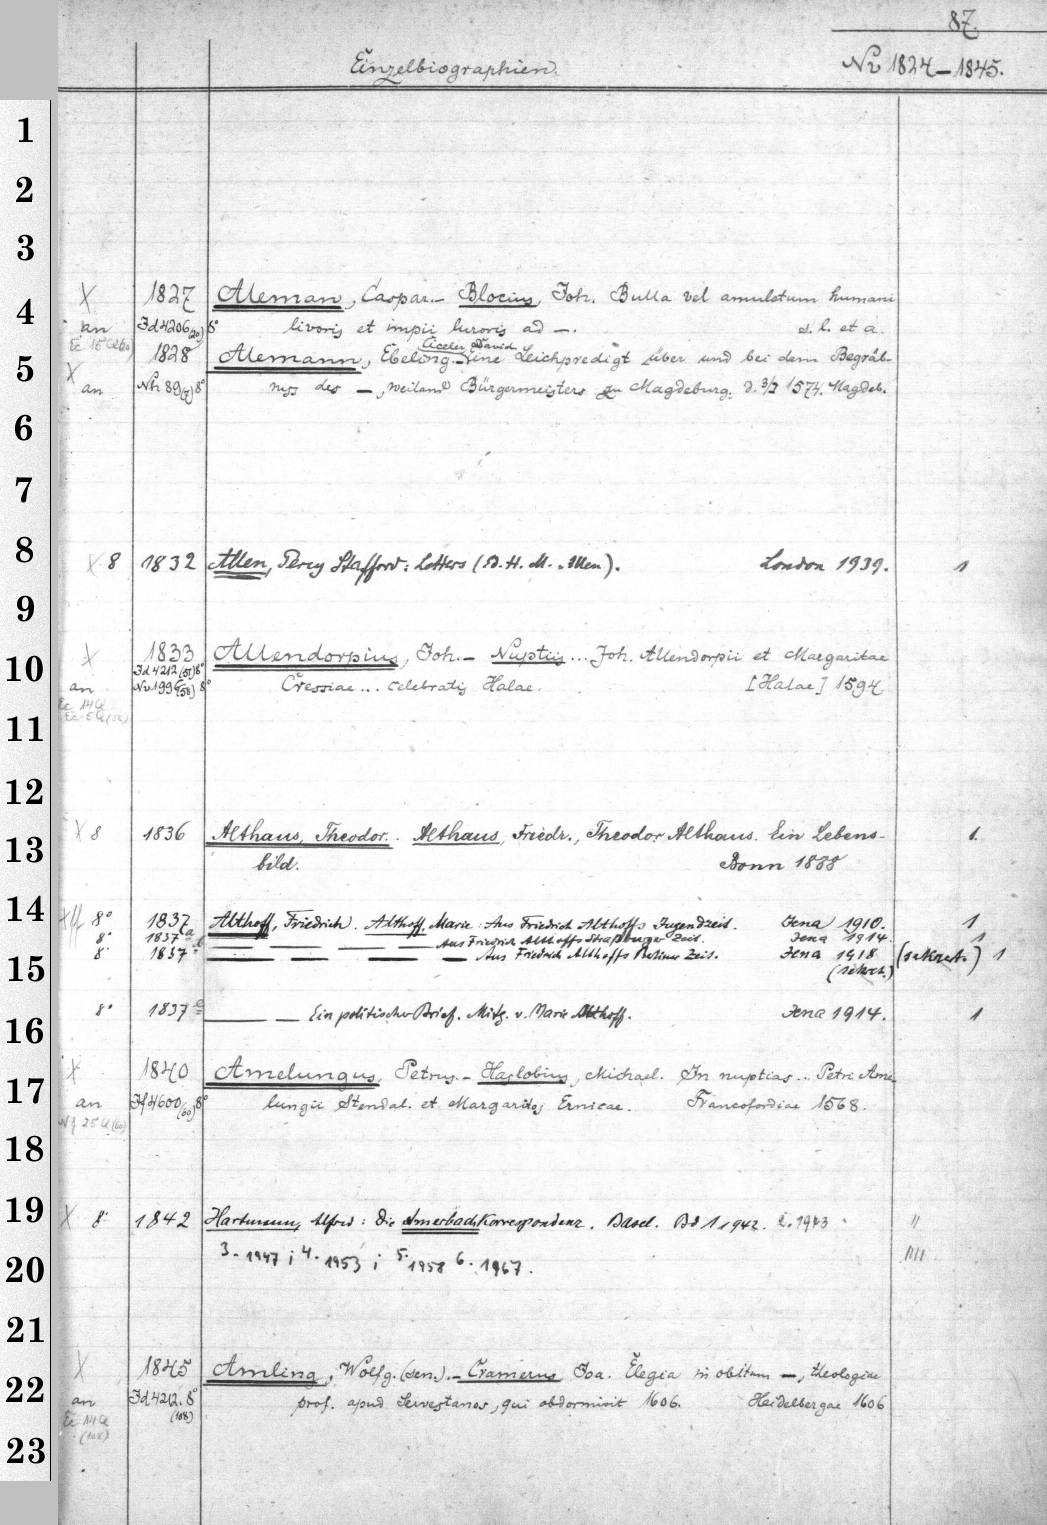 87.
Einzelbiographien.
Nv 1824-1845.
1
2
3
X 1827 Aleman, Caspar.- Blocius, Joh. Bulla vel amuletum humani
4
an Id 4206(20) 8° livoris et impii furoris ad -. s. l. et a.
1828 Alemann, Ebeling.- Eine Leichpredigt über und bei dem Begräb-
Ciceler David
5
X
an 89 8° nuss des -, weiland Bürgermeisters zu Magdeburg. d. 3/I 1574. Magdeb.
6
7
8
X 8 1832 Allen, Percy Stafford: Letters (v. H. M. Allen). London 1939. 1
9
X 1833 Allendorpius, Joh.- Nuptiis ... Joh. Allendorpii et Margaritae
10
Id 4212 (51) 8°
an Nv 1995(58) 8° Cressiae ... celebratis Halae. [Halae] 1594
11
12
X 8 1836 Althaus, Theodor.. Althaus, Friedr., Theodor Althaus. Ein Lebens- 1.
13
bild. Bonn 1888
14
8° 1837 Althoff, Friedrich). Althoff, Marie: Aus Friedrich Althoffs Jugendzeit. Jena 1910. 1
8° 1837 a Aus Friedrich Althoffs Straßburger Zeit. Jena 1914. 1
8° 1837 b Aus Friedrich Althoffs Berliner Zeit. Jena 1918 (sekret.) 1
15
(sekret.)
8° 1837 c Ein politischer Brief. Mitg. v. Marie Althoff. Jena 1914. 1
16
X 1840 Amelungus, Petrus.- Haslobius, Michael. In nuptias ... Petri Ame-
17
an If 4600(60) 8° lungii Stendal. et Margaritos Ernicae. Francofordiae 1568.
Nf 25
18
19
X 8° 1842 Hartmann, Alfred: Die Amerbachkorrespondenz. Basel. Bd 1 1942. 2. 1943 II
3. 1947; 4. 1953; 5. 1958 6. 1967. IIII
20
21
X 1845 Amling, Wolfg. (sen.).- Cramerus Joa. Elegia in obitum -, theologiae
22
an Id 4212. 8° prof. apud Servestanos, qui obdormivit 1606. Heidelbergae 1606
(108)
(108)
23